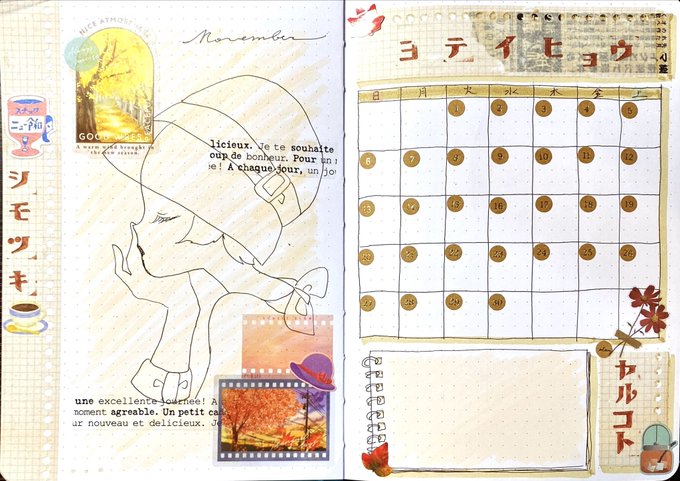 November
NICE
A warm wind brought in
the new season.
licieux. Je te souhaite
oup de bonheur. Pour un
e! A chaque jour, un jo
スナック
ニュー
シモツキ
une excellente journée! A
moment agreable. Un petit ca
ur nouveau et delicieux. Je
ヨテイヒョウ
日 月 火 水 木 金 土
1 2 3 4 5
6 7 8 9 10 11 12
13 14 15 16 17 18 19
20 21 22 23 24 25 26
27 28 29 30
ヤルコト